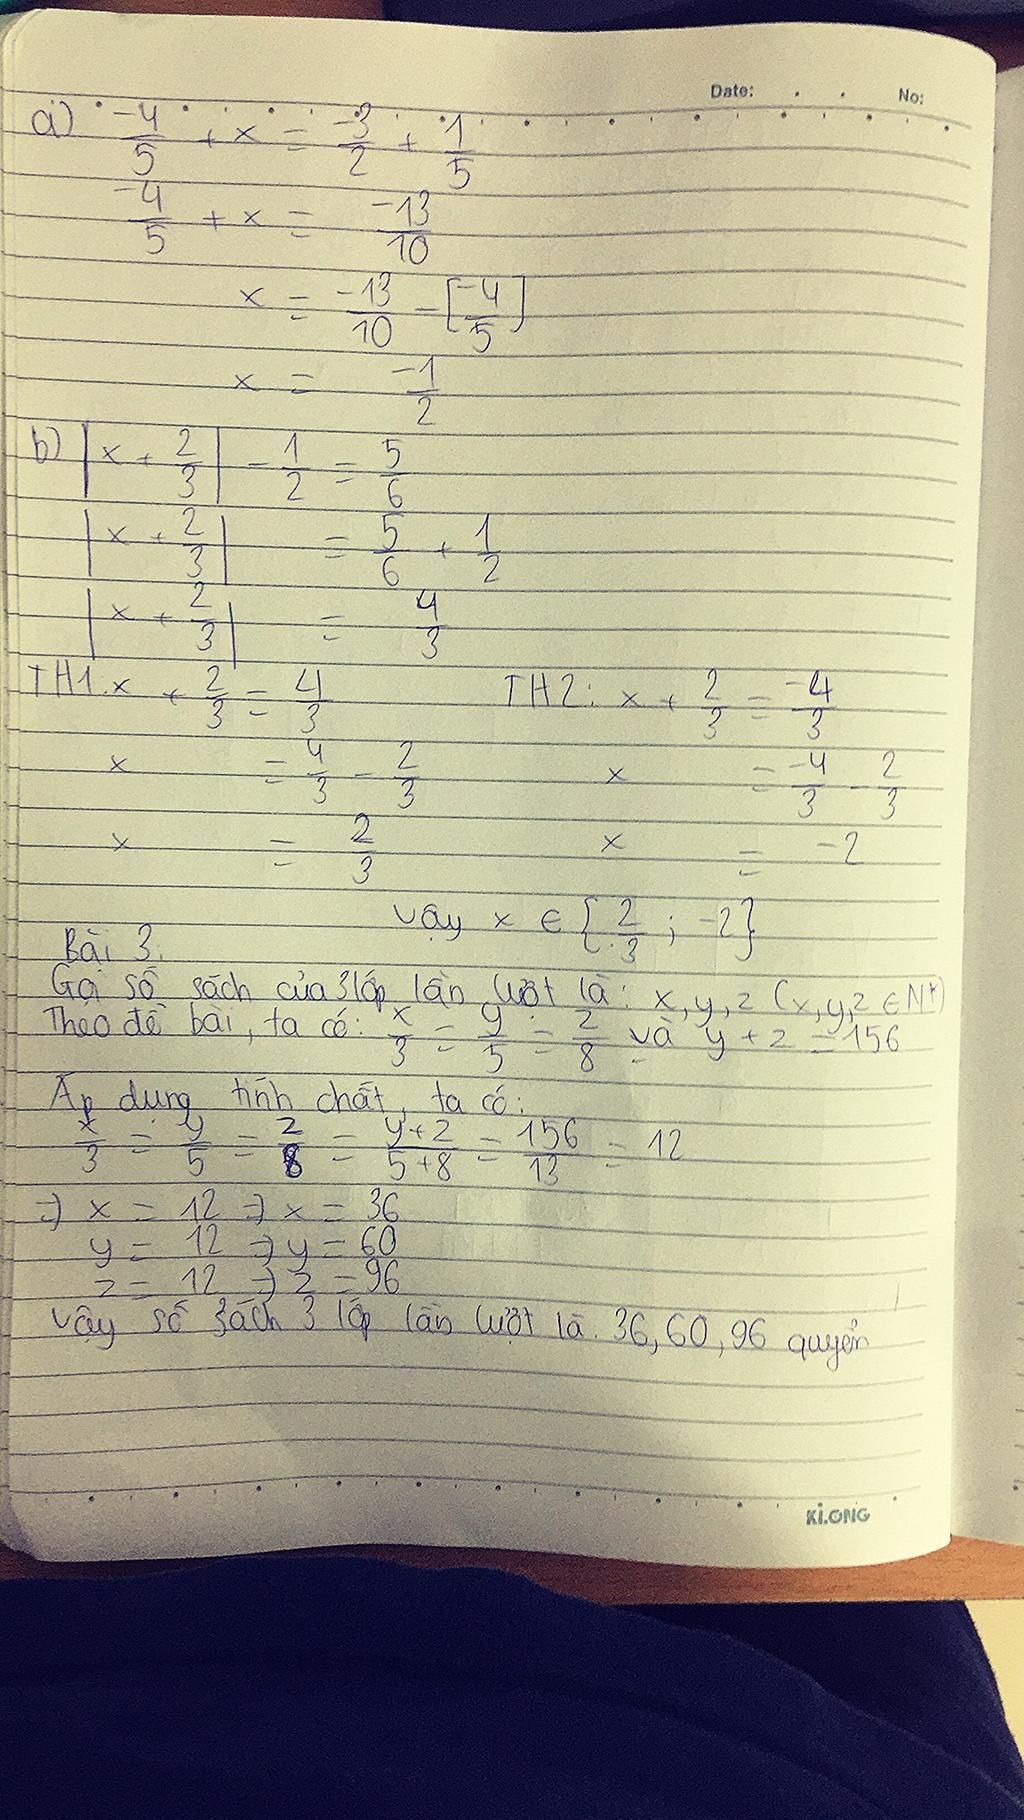 Date: No:
a) -4/5 + x = -3/2 + 1/5
-4/5 + x = -13/10
x = -13/10 - [-4/5]
x = -1/2
b) |x + 2/3| - 1/2 = 5/6
|x + 2/3| = 5/6 + 1/2
|x + 2/3| = 4/3
TH1: x + 2/3 = 4/3 TH2: x + 2/3 = -4/3
x = 4/3 - 2/3 x = -4/3 - 2/3
x = 2/3 x = -2
Vậy x ∈ {2/3 ; -2}
Bài 3:
Gọi số sách của 3 lớp lần lượt là: x, y, z (x, y, z ∈ N*)
Theo đề bài, ta có: x/3 = y/5 = z/8 và y + z = 156
Áp dụng tính chất, ta có:
x/3 = y/5 = z/8 = y+z/5+8 = 156/13 = 12
=> x = 12 => x = 36
y = 12 => y = 60
z = 12 => z = 96
Vậy số sách 3 lớp lần lượt là: 36, 60, 96 quyển
KLONG